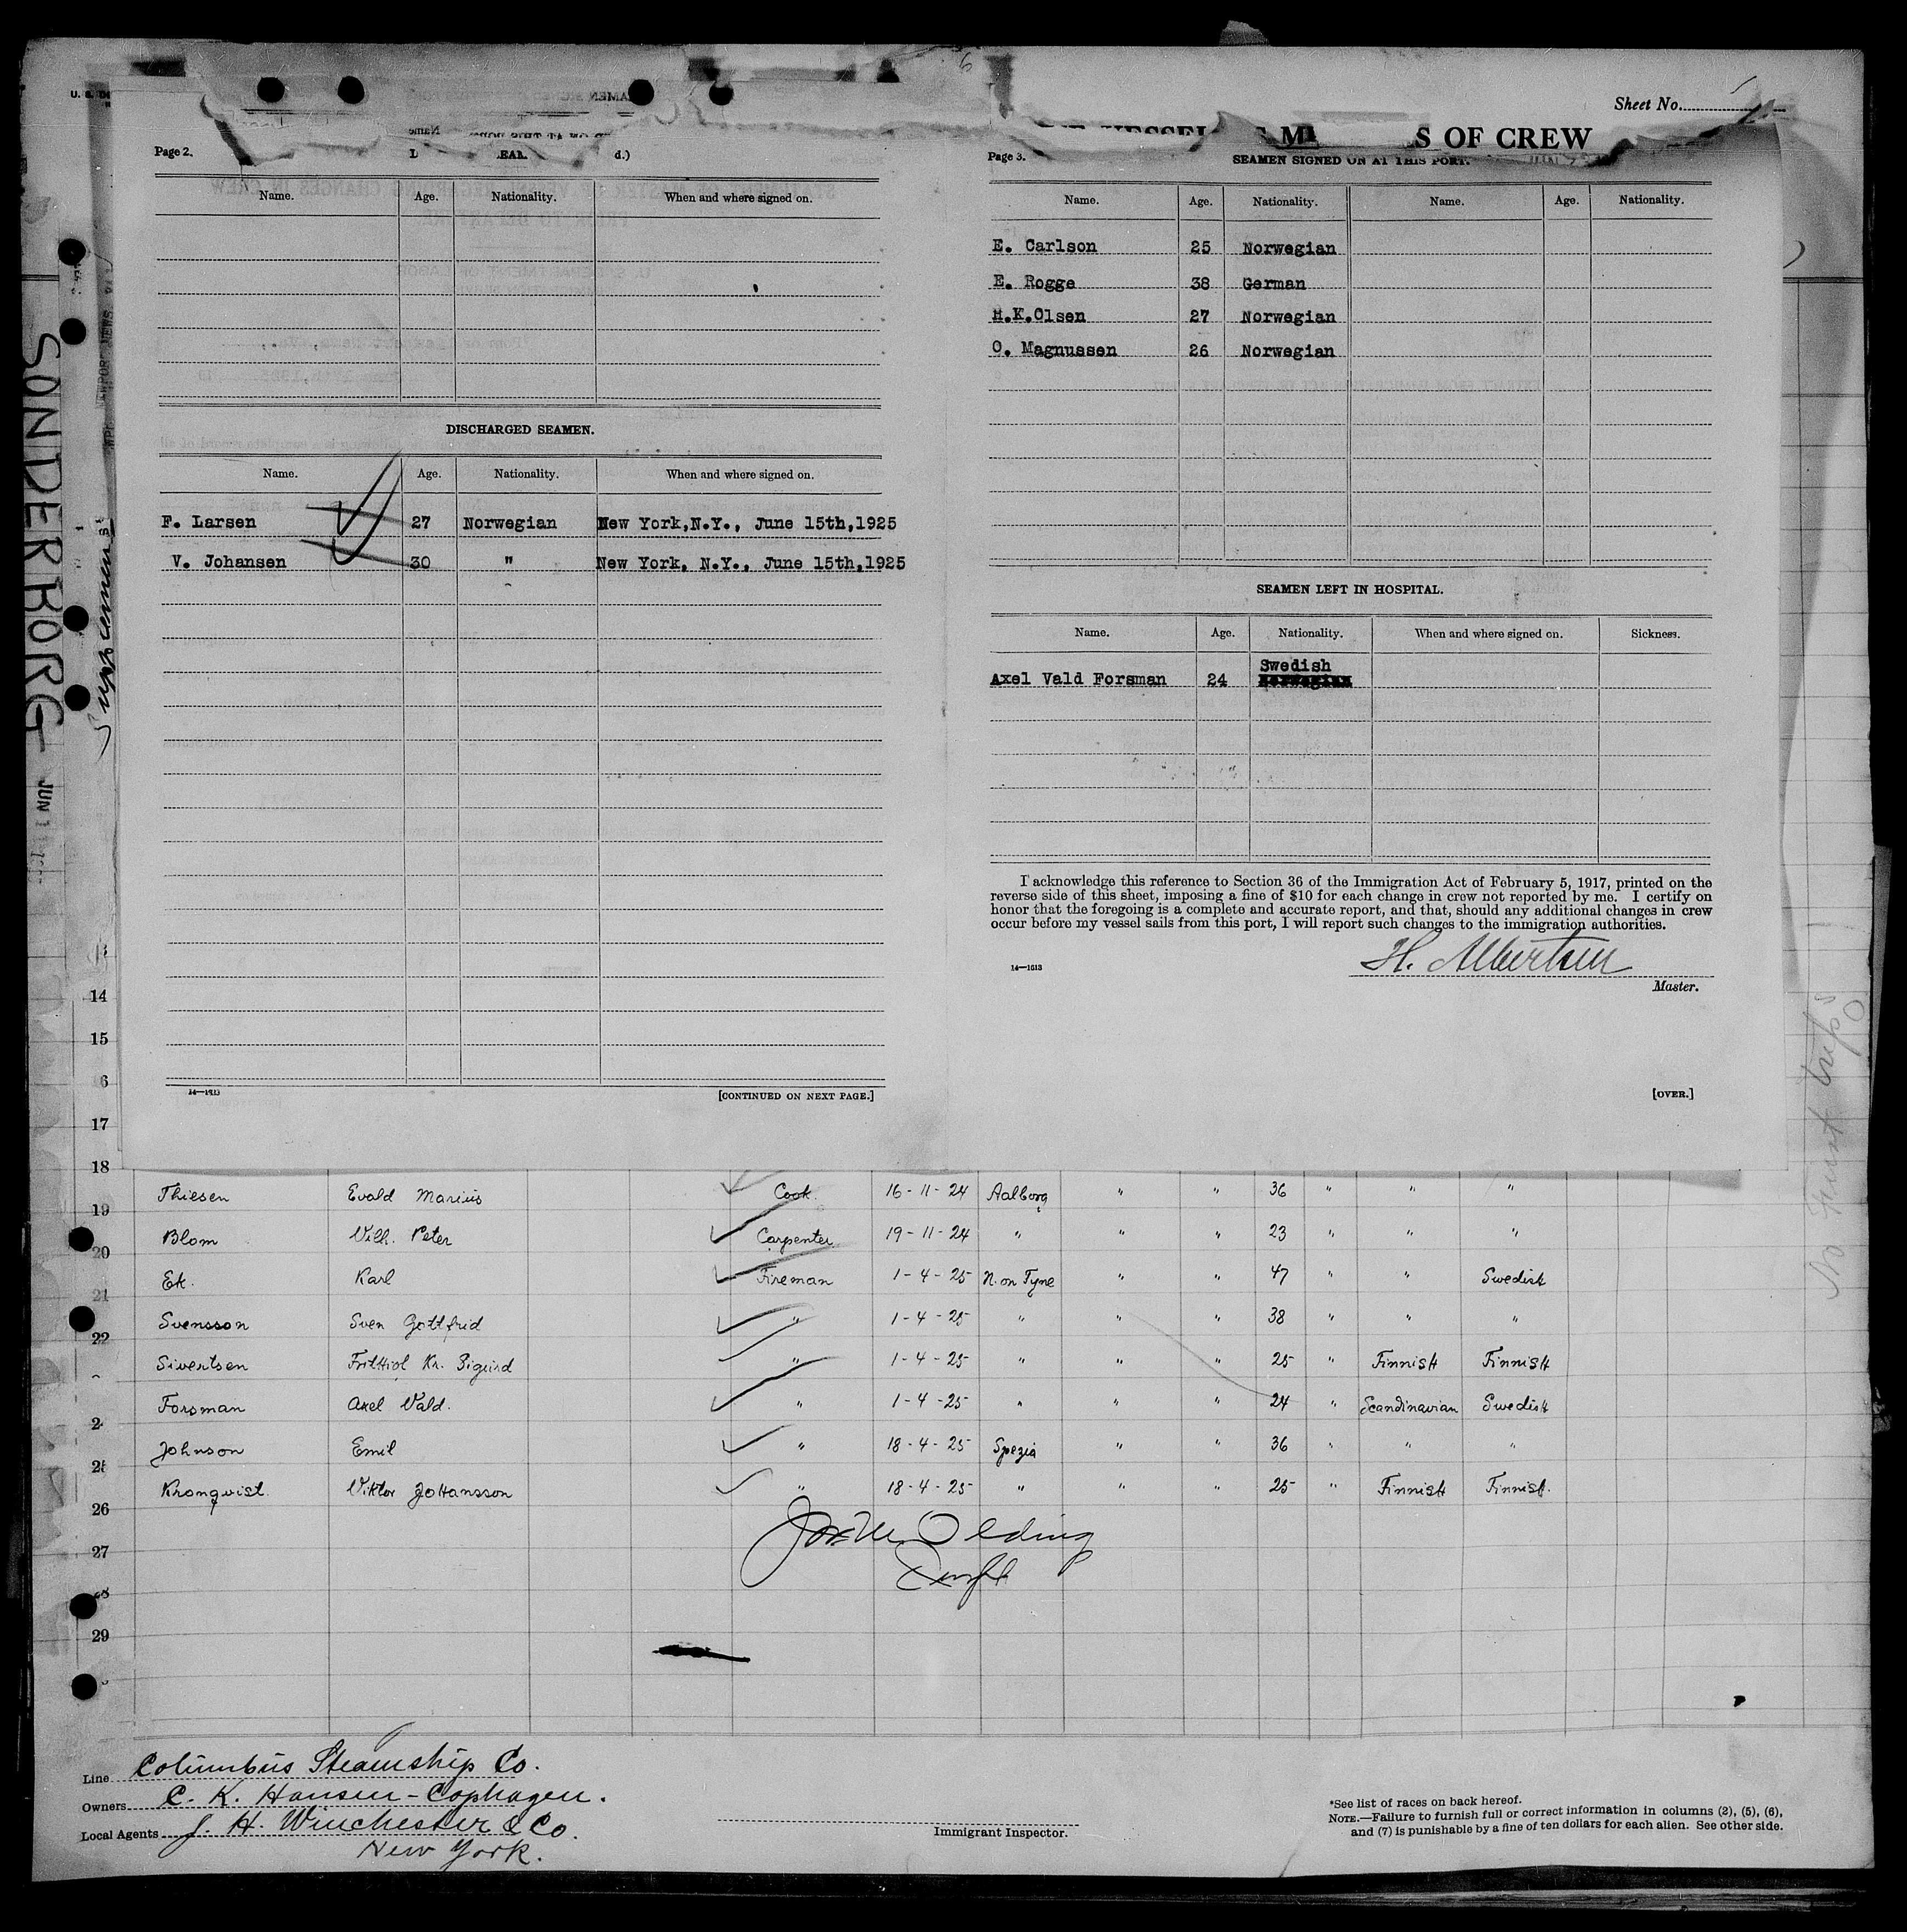 Sheet No.
S OF CREW
Page 2.
Name. Age. Nationality. When and where signed on.
DISCHARGED SEAMEN.
Name. Age. Nationality. When and where signed on.
F. Larsen 27 Norwegian New York,N.Y., June 15th,1925
V. Johansen 30 " New York, N.Y., June 15th,1925
14—1613
[CONTINUED ON NEXT PAGE.]
Page 3.
SEAMEN SIGNED ON AT THIS PORT.
Name. Age. Nationality. Name. Age. Nationality.
E. Carlson 25 Norwegian
E. Rogge 38 German
H.K.Olsen 27 Norwegian
O. Magnussen 26 Norwegian
SEAMEN LEFT IN HOSPITAL.
Name. Age. Nationality. When and where signed on. Sickness.
Swedish
Axel Vald Forsman 24 Norwegian
I acknowledge this reference to Section 36 of the Immigration Act of February 5, 1917, printed on the
reverse side of this sheet, imposing a fine of $10 for each change in crew not reported by me. I certify on
honor that the foregoing is a complete and accurate report, and that, should any additional changes in crew
occur before my vessel sails from this port, I will report such changes to the immigration authorities.
H. Albertsen
14—1613
Master.
[OVER.]
SONDERBORG
JUN 1
Supplement
14
15
6
17
18
Thiesen Evald Marius Cook 16-11-24 Aalborg " " 36 " " "
19
Blom Vilh. Peter Carpenter 19-11-24 " " " 23 " " "
20
Ek. Karl Fireman 1-4-25 N. on Tyne " " 47 " " Swedish
21
Svensson Sven Gottfrid " 1-4-25 " " " 38 " " "
22
Sivertsen Frithiof Kr. Sigurd " 1-4-25 " " " 25 " Finnish Finnish
Forsman Axel Vald. " 1-4-25 " " " 24 " Scandinavian Swedish
2
Johnson Emil " 18-4-25 Spezia " " 36 " " "
25
Kronqvist. Viktor Johansson " 18-4-25 " " " 25 " Finnish Finnish.
26
27
28
29
Olding
Line Columbus Steamship Co.
Owners C. K. Hansen - Cophagen.
Local Agents J. H. Winchester & Co.
New York.
Immigrant Inspector.
*See list of races on back hereof.
NOTE.—Failure to furnish full or correct information in columns (2), (5), (6),
and (7) is punishable by a fine of ten dollars for each alien. See other side.